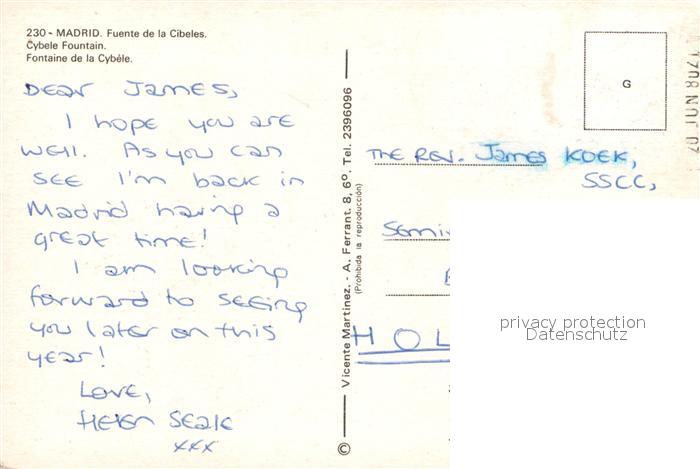 230 - MADRID. Fuente de la Cibeles.
Cybele Fountain.
Fontaine de la Cybéle.
DEar JamES,
I hope you are
well. As you can
SEE I'm back in
Madrid having a
great time!
I am looking
forward to SEEing
you later on this
year!
Love,
Helen
xxx
© Vicente Martinez. - A. Ferrant, 8, 6º. Tel. 2396096
(Prohibida la reproducción)
G
THE REV. James KOEK,
SSCC,
HOL
privacy protection
Datenschutz